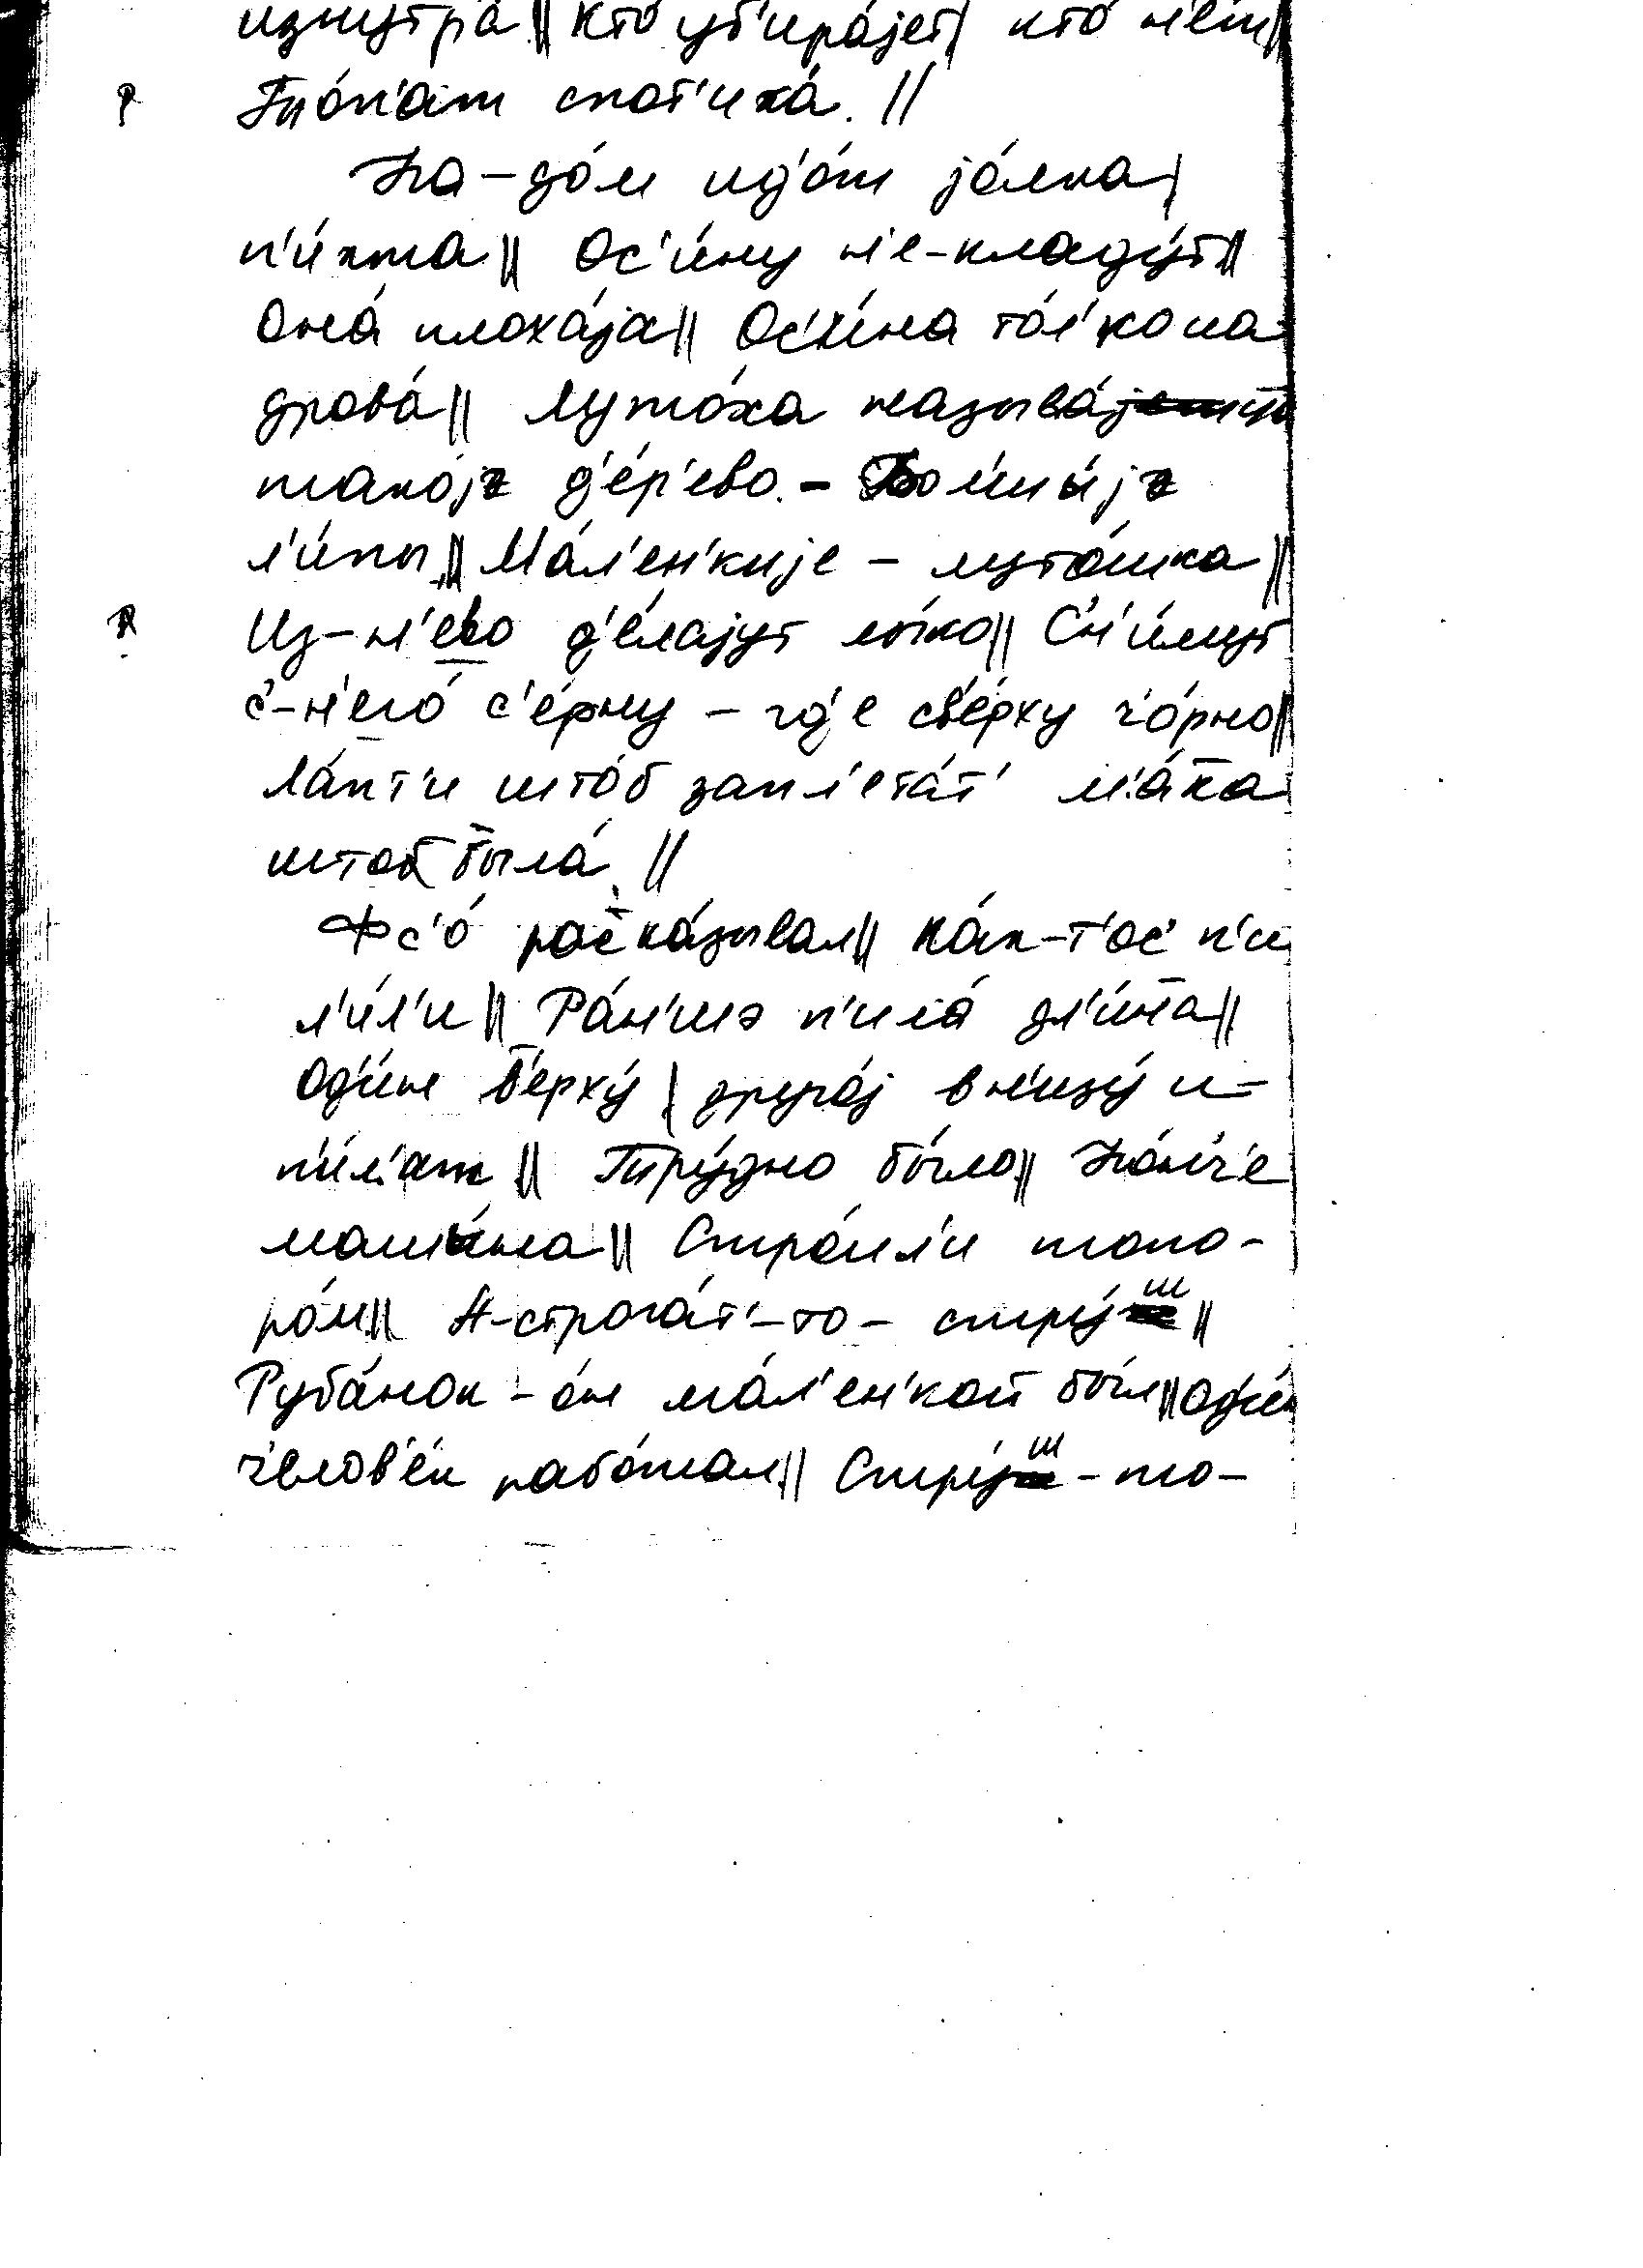 изнутра́ || кто́ уб'ира́jет | кто́ н'е́т ||
То́п'ат спот'иха́. ||
На-до́м ид'о́т jо́лка |
п'и́хта || Ос'и́ну н'е-кладу́т ||
Она́ плоха́jа || Ос'и́на то́л'ко на
дрова́ || Луто́ха называ́jетцо
тако́jэ д'е́р'ево. - Бо́лшыjэ
л'и́пы || Ма́л'ен'киjе - луто́шка ||
Из-н'ево́ д'е́лаjут лы́ко || С'н'и́мут
с'-н'его́ с'е́рну - гд'е св'е́рху ч'о́рно ||
Ла́пт'и што́б запл'ета́т' м'а́х̄ка
штоб была́. ||
Фс'о́ расс̄ка́зывал || Ка́к-т'ос п'и
л'и́л'и || Ра́н'шэ п'ила́ дл'и́н̄а ||
Од'и́н в̄'ерху́ | друго́j вн'изу́ и-
п'и́л'ат || Тру́дно бы́ло || Но́н'ч'е
машы́на || Стро́ил'и топо-
ро́м || А-строга́т'-то - стру́ш ||
Руба́нок - о́н ма́л'ен'кой бы́л || од'и́н
ч'елов'е́к рабо́тал || Стру́ш-то-